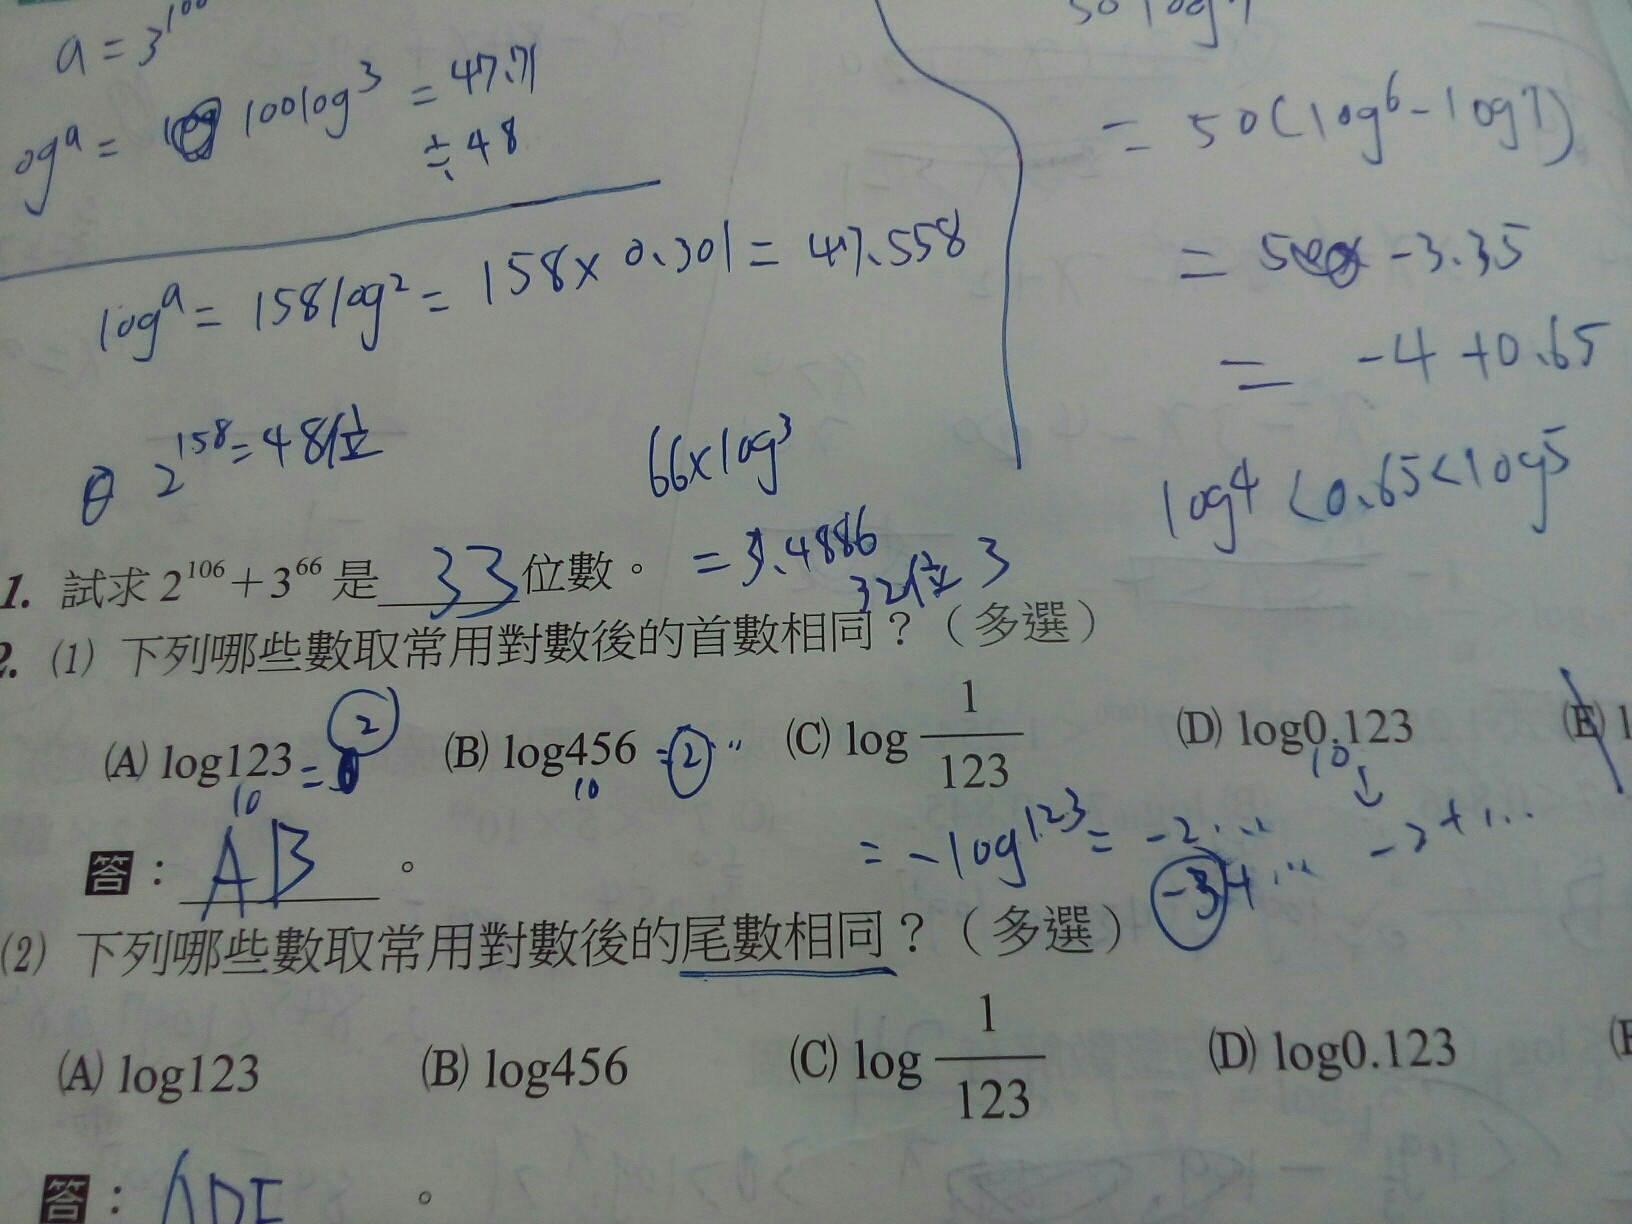 a = 3^100
log^a = 100log^3 = 47.71
÷ 48
log^a = 158log^2 = 158 × 0.301 = 47.558
2^158 = 48位
66×log^3
= 31.4886
32位
50 log
= 50(log^6 - log7)
= -3.35
= -4 + 0.65
log4 < 0.65 < log5
1. 試求 2^106 + 3^66 是 33 位數。
2. (1) 下列哪些數取常用對數後的首數相同？（多選）
(A) log123 = 2 (B) log456 = 2… (C) log 1/123 (D) log0.123 (E)
10 10 10
= -log^123 = -2…
-3+… -2+…
答： AB 。
(2) 下列哪些數取常用對數後的尾數相同？（多選）
(A) log123 (B) log456 (C) log 1/123 (D) log0.123
答： ADE 。